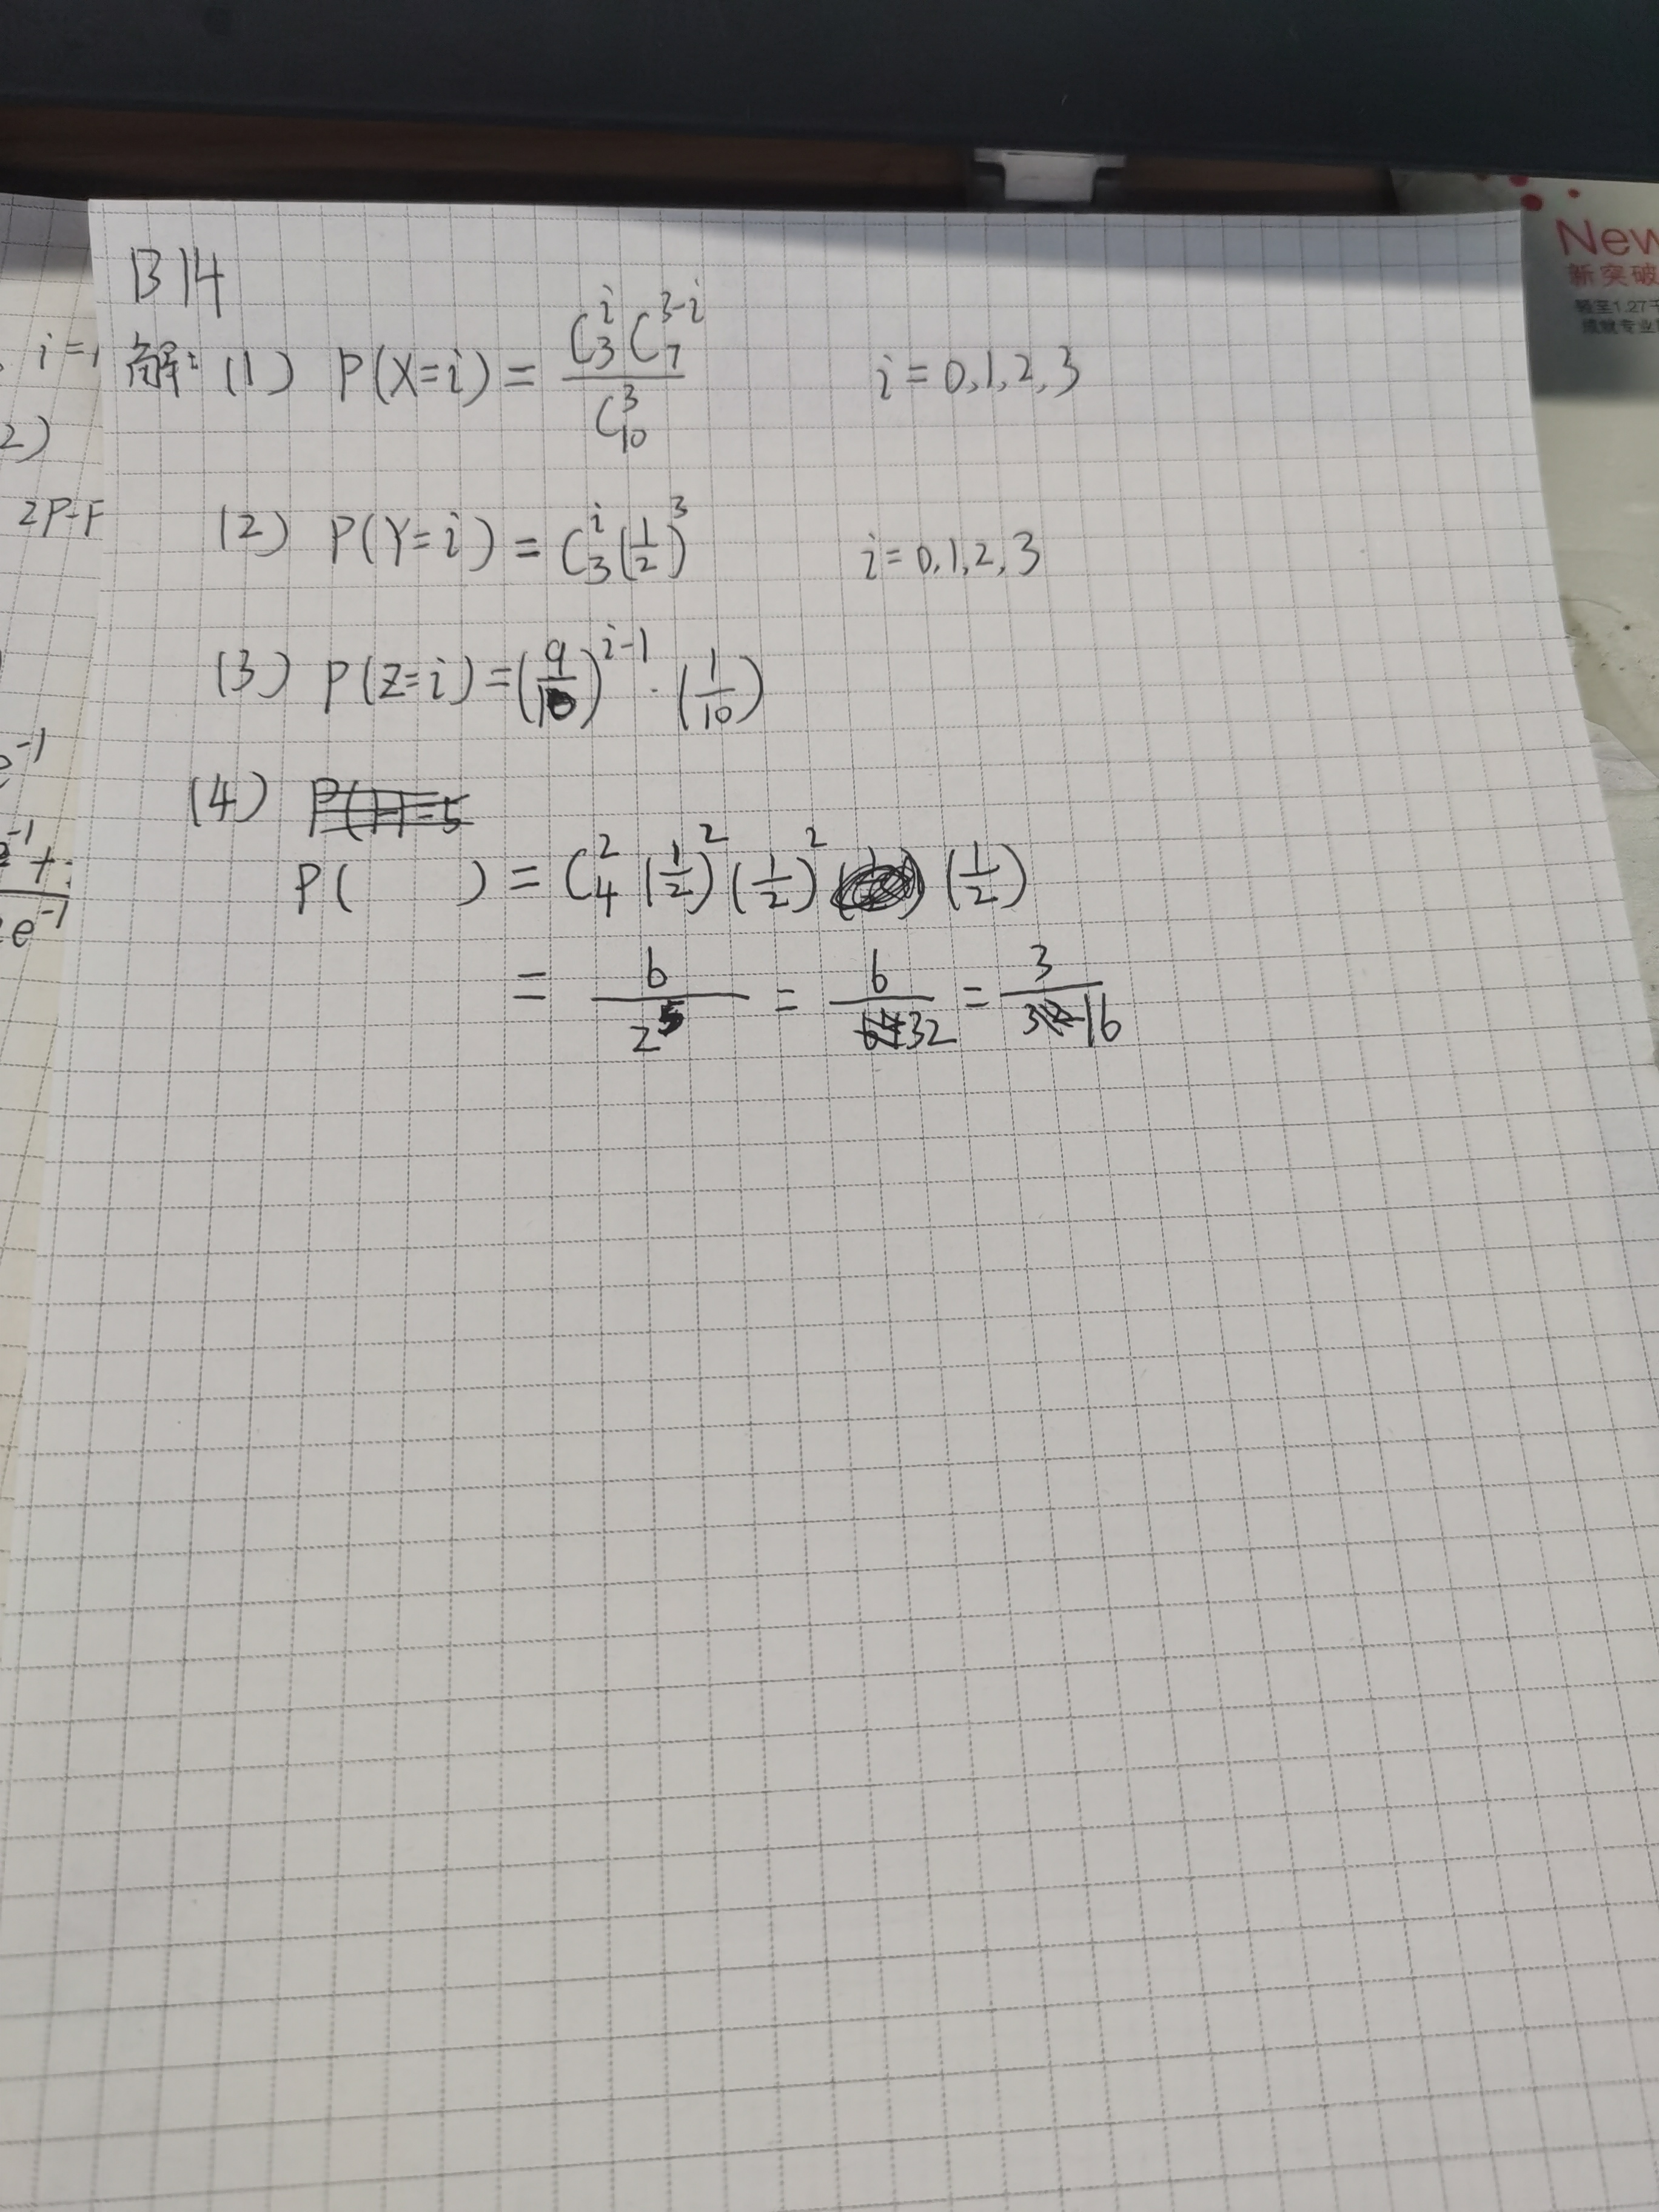 B14
解: (1) P(X=i) = \frac{C_3^i C_7^{3-i}}{C_{10}^3} i = 0,1,2,3
(2) P(Y=i) = C_3^i (\frac{1}{2})^3 i = 0,1,2,3
(3) P(Z=i) = (\frac{9}{10})^{i-1} · (\frac{1}{10})
(4)
P( ) = C_4^2 (\frac{1}{2})^2 (\frac{1}{2})^2 (\frac{1}{2})
= \frac{6}{2^5} = \frac{6}{32} = \frac{3}{16}
i=
2)
2P-F
e^{-1}
e^{-1}+
e^{-1}
New
新突破